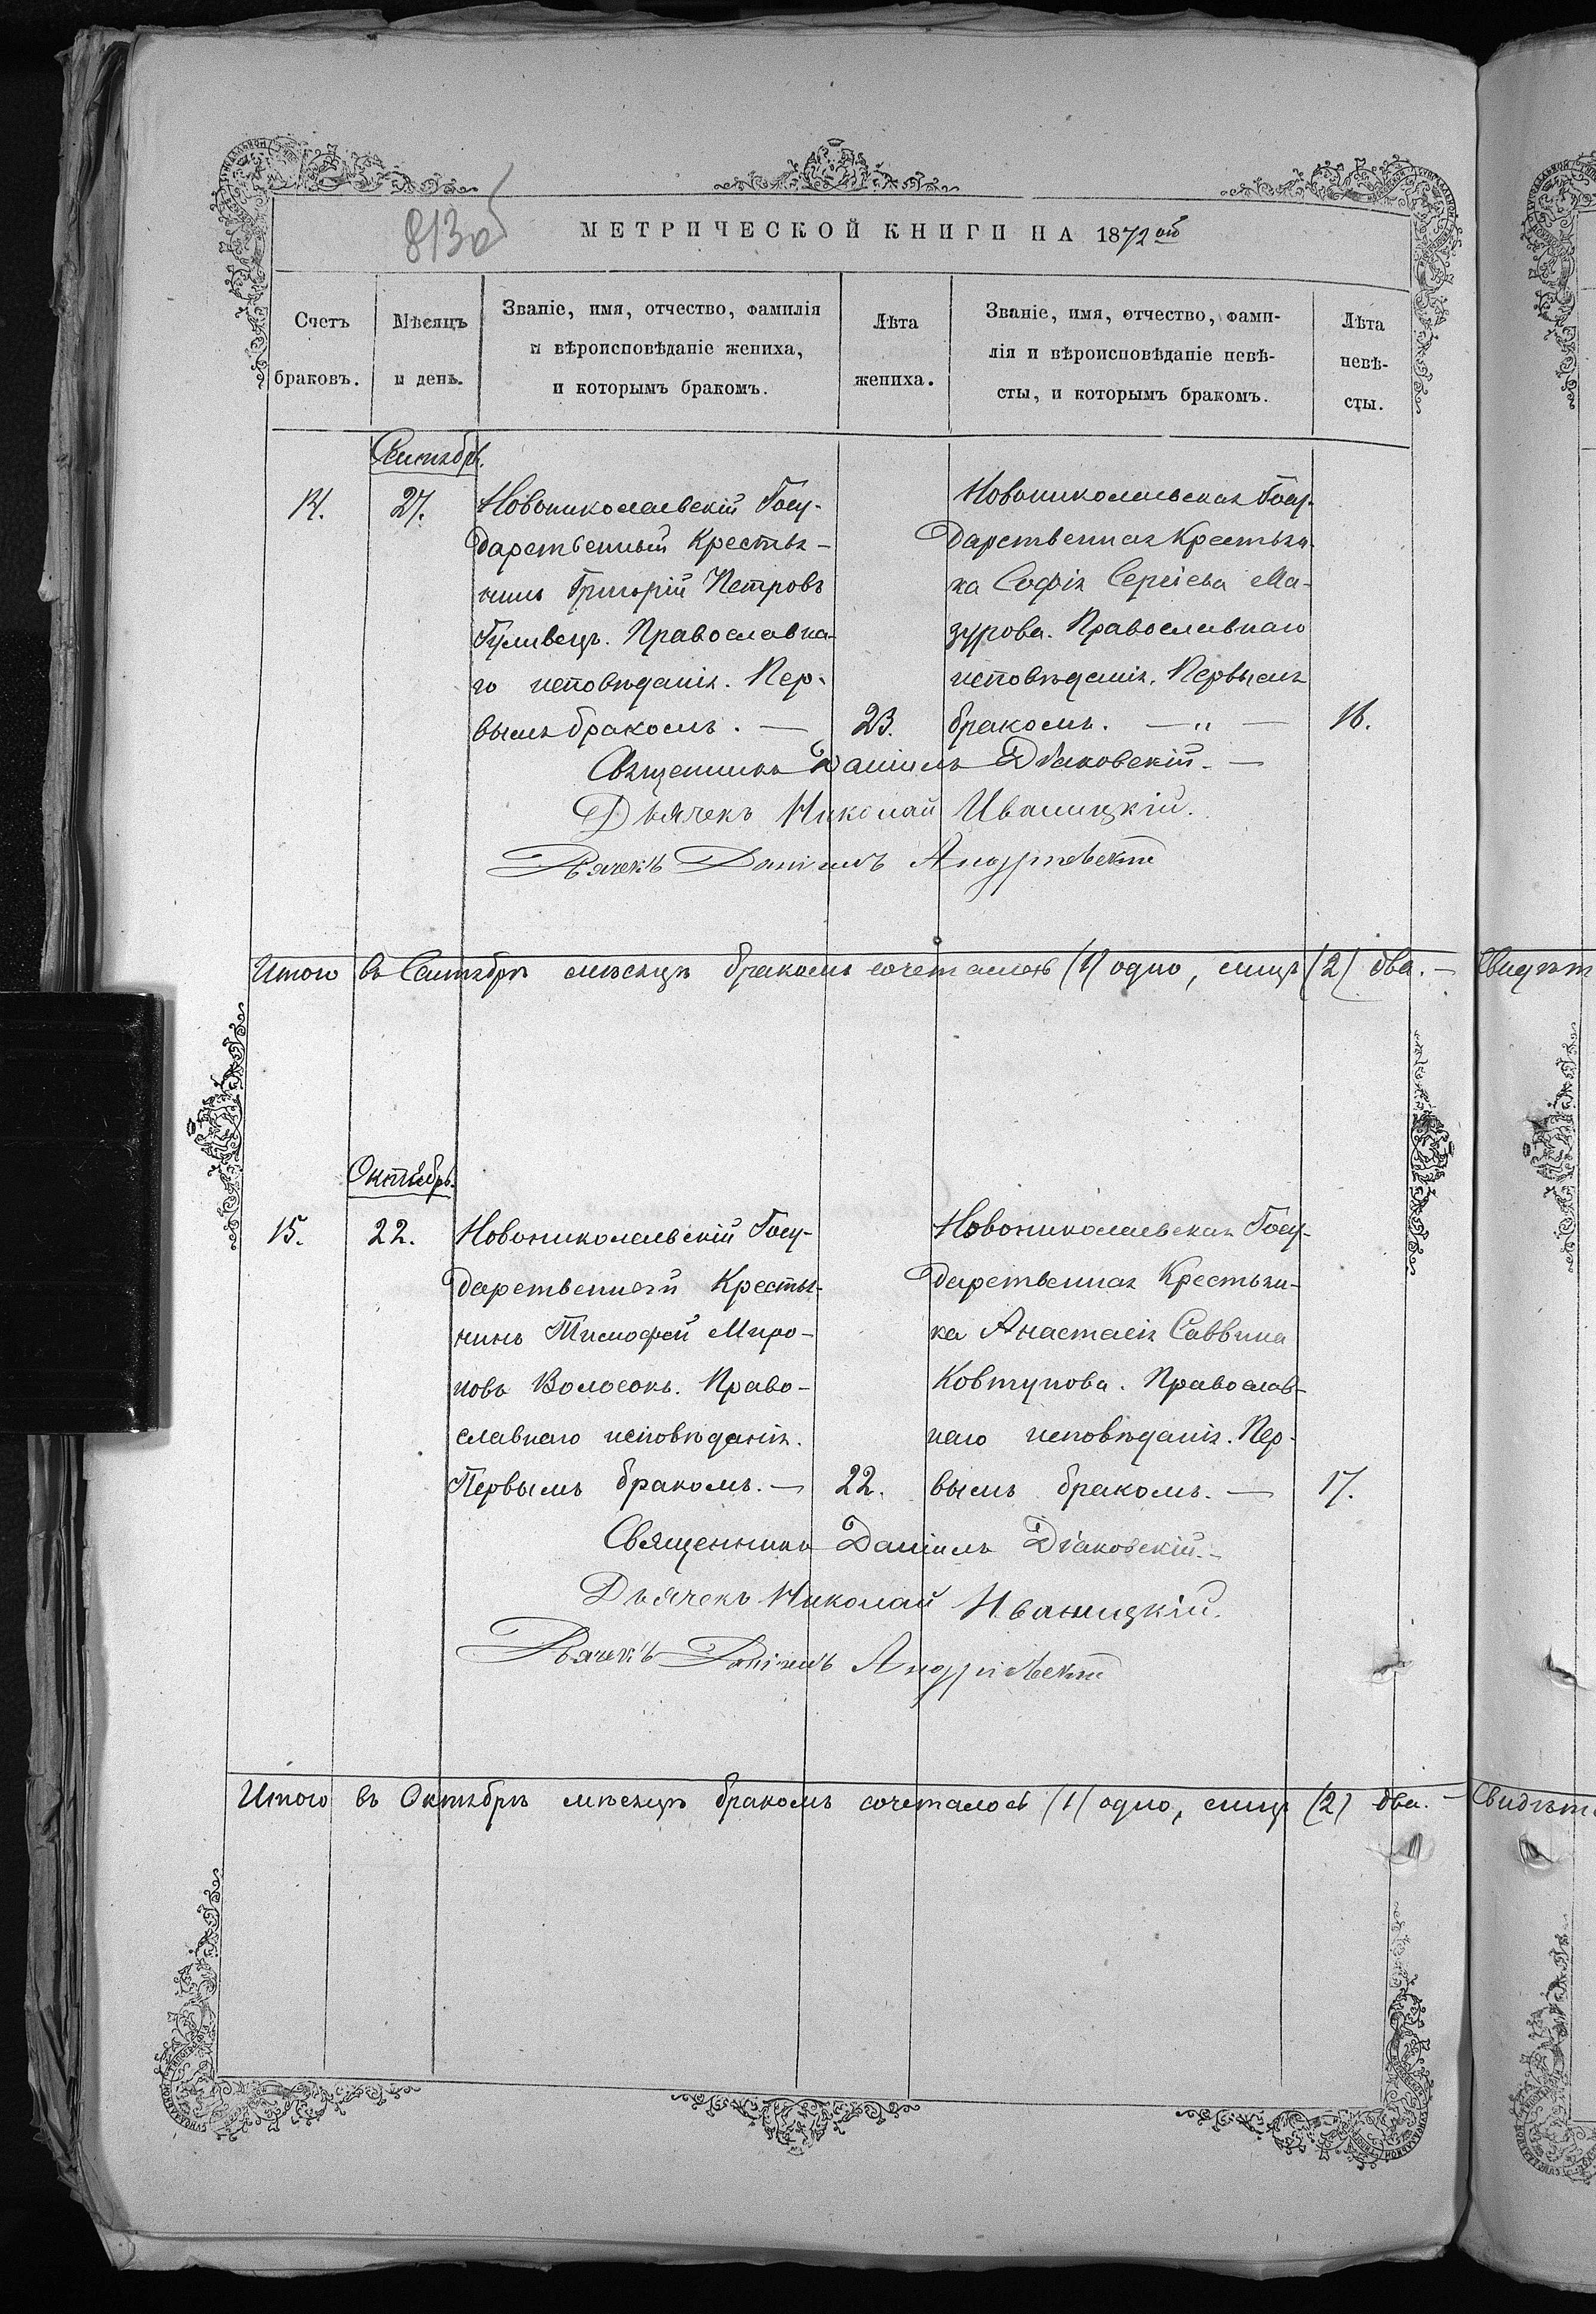 813об
МЕТРИЧЕСКОЙ КНИГИ НА 1872 ой
Счетъ браковъ.
Мѣсяцъ и день.
Званіе, имя, отчество, фамилія
и вѣроисповѣданіе жениха,
и которымъ бракомъ.
Лѣта жениха.
Званіе, имя, отчество, фами-
лія и вѣроисповѣданіе невѣ-
сты, и которымъ бракомъ.
Лѣта невѣ-
сты.
Сентябрь.
14.
27.
Новониколаевскій Госу-
дарственный Крестья-
нинъ Григорій Петровъ
Гуливецъ. Православна-
го исповѣданія. Пер-
вымъ бракомъ. —
23.
Новониколаевская Госу-
дарственная Крестьян-
ка Софія Сергіева Ма-
зурова. Православнаго
исповѣданія. Первымъ
бракомъ. — „ —
16.
Священникъ Даніилъ Діаковскій. —
Дьячекъ Николай Иваницкій.
Дьячекъ Даніилъ Андріевскій
Итого въ Сентябрѣ мѣсяцѣ бракомъ сочеталось (1) одно, лицъ (2) два. —
Свидѣт
Октябрь.
15.
22.
Новониколаевскій Госу-
дарственный Крестья-
нинъ Тимофей Миро-
новъ Волосокъ. Право-
славнаго исповѣданія.
Первымъ бракомъ. —
22.
Новониколаевская Госу-
дарственная Крестьян-
ка Анастасія Саввина
Ковтунова. Православ-
наго исповѣданія. Пер-
вымъ бракомъ. —
17.
Священникъ Даніилъ Діаковскій. —
Дьячекъ Николай Иваницкій.
Дьячекъ Даніилъ Андріевскій
Итого въ Октябрѣ мѣсяцѣ бракомъ сочеталось (1) одно, лицъ (2) два. —
Свидѣте